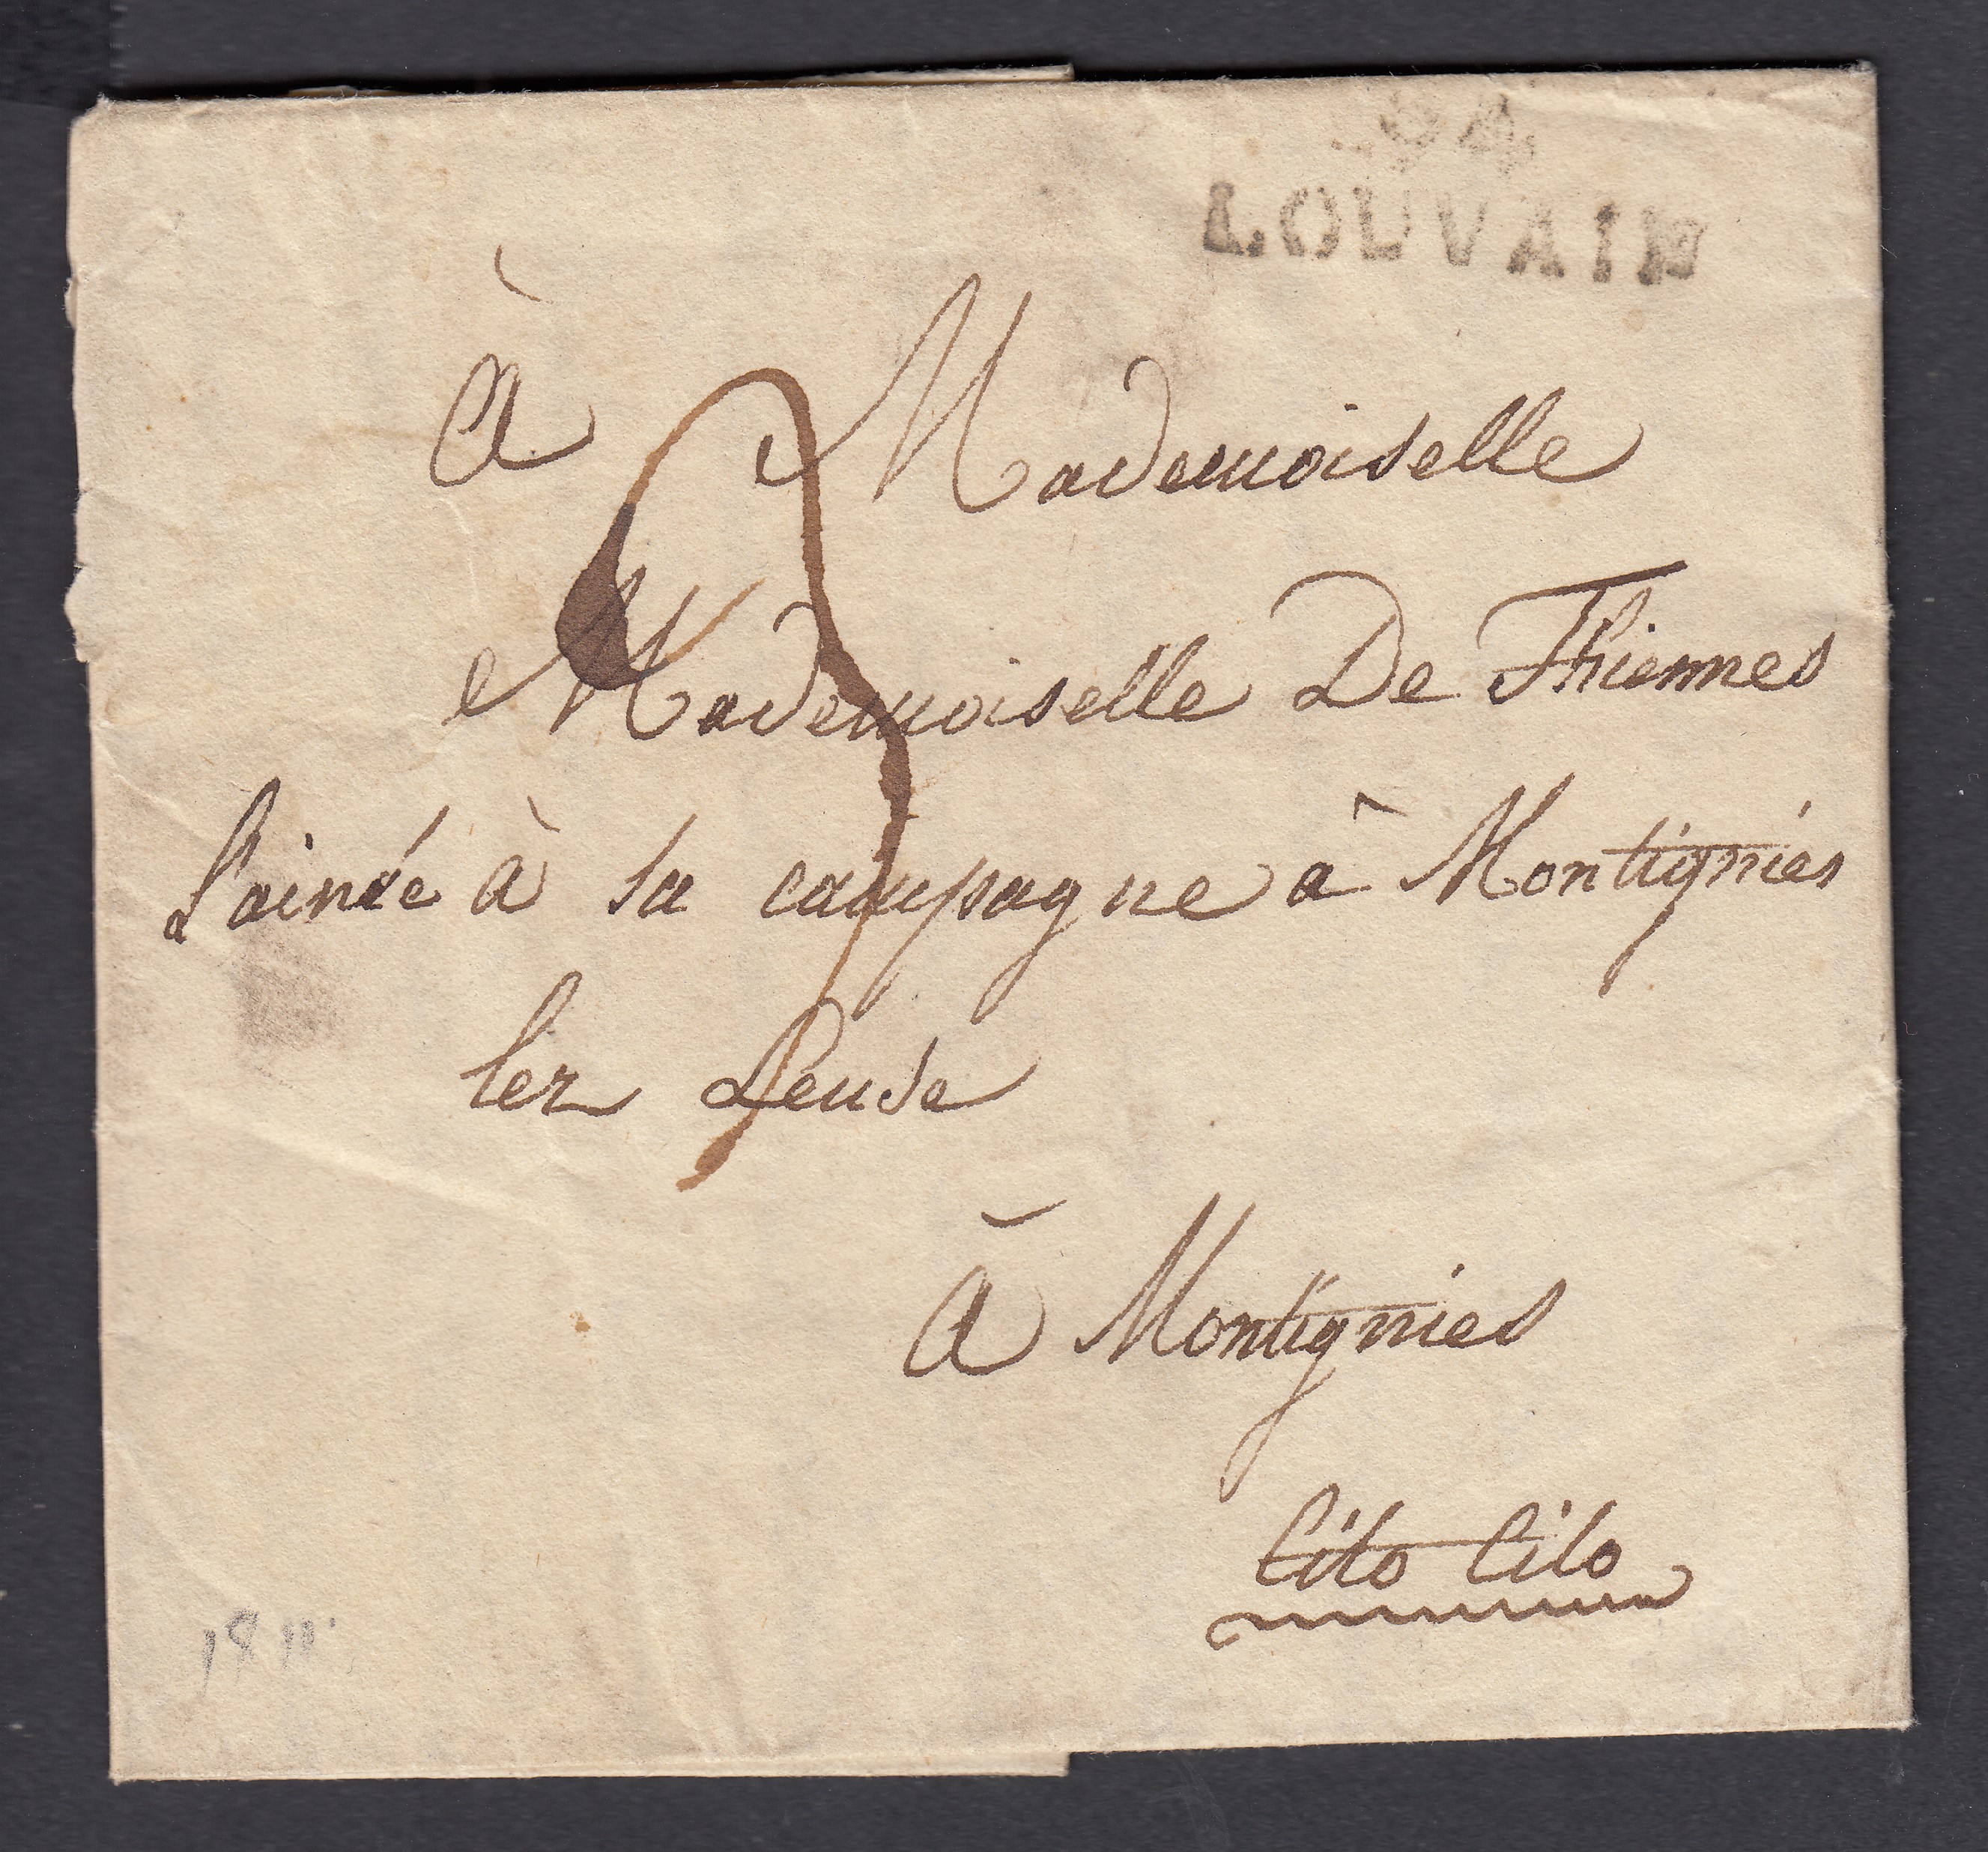 94
LOUVAIN
à Mademoiselle
Mademoiselle De Thiennes
L'ainée à sa campagne à Montignies
lez Leuse
à Montignies
Cito Cito
1811
3